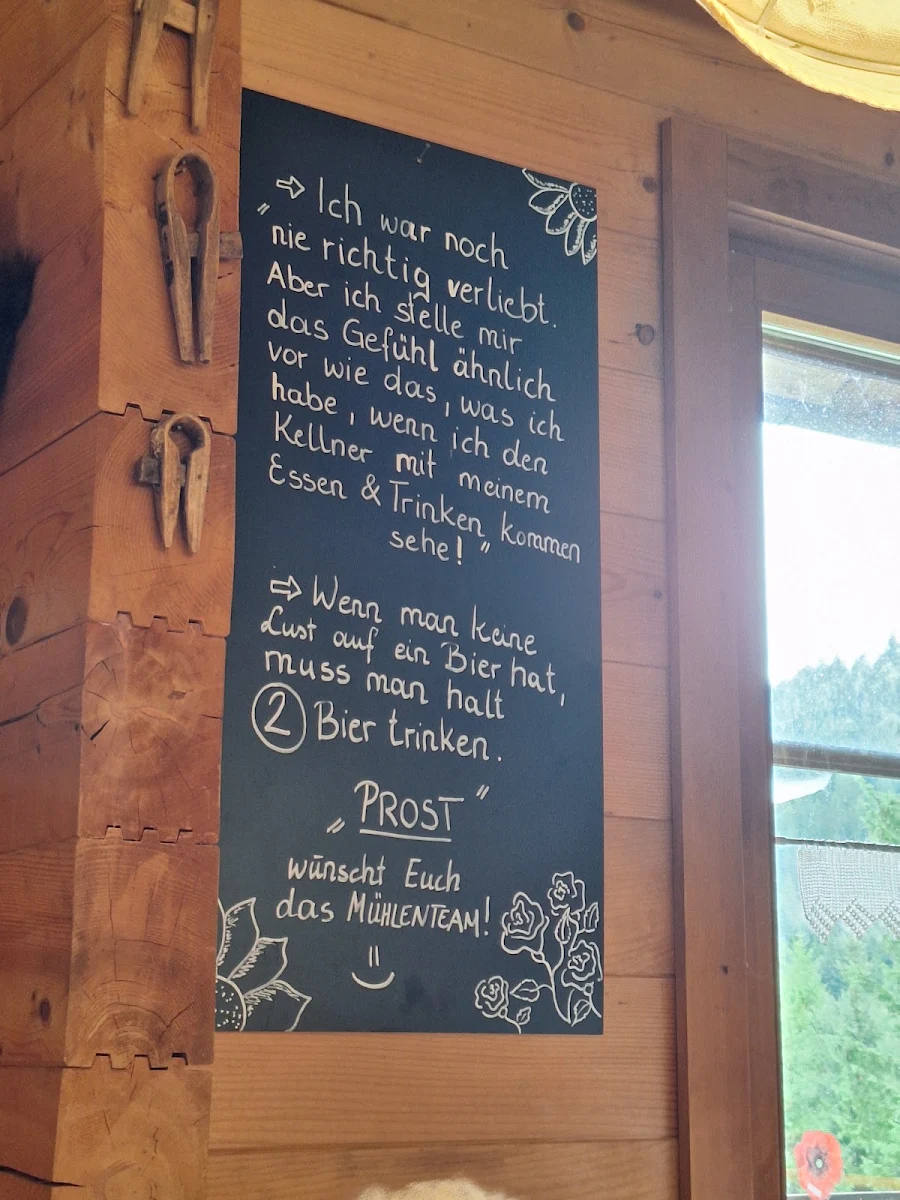 ⇨ Ich war noch
„ nie richtig verliebt.
Aber ich stelle mir
das Gefühl ähnlich
vor wie das, was ich
habe, wenn ich den
Kellner mit meinem
Essen & Trinken kommen
sehe! "
⇨ Wenn man keine
Lust auf ein Bier hat,
muss man halt
2 Bier trinken.
„ PROST "
wünscht Euch
das MÜHLENTEAM!